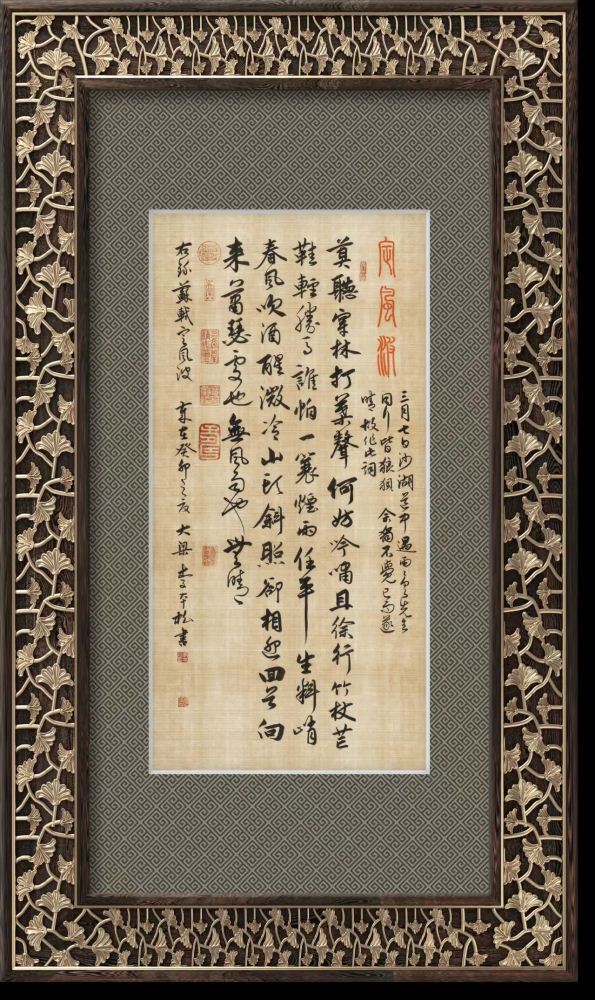 定風波
三月七日沙湖道中遇雨雨具先去
同行皆狼狽余獨不覺已而遂
晴故作此詞
莫聽穿林打葉聲何妨吟嘯且徐行竹杖芒
鞋輕勝馬誰怕一蓑煙雨任平生料峭
春風吹酒醒微冷山頭斜照卻相迎回首向
来蕭瑟處也無風雨也無晴
右錄蘇軾定風波 歲在癸卯之夏 大梁 書